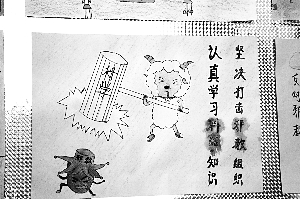 坚决打击邪教组织
认真学习科学知识
科学
邪教